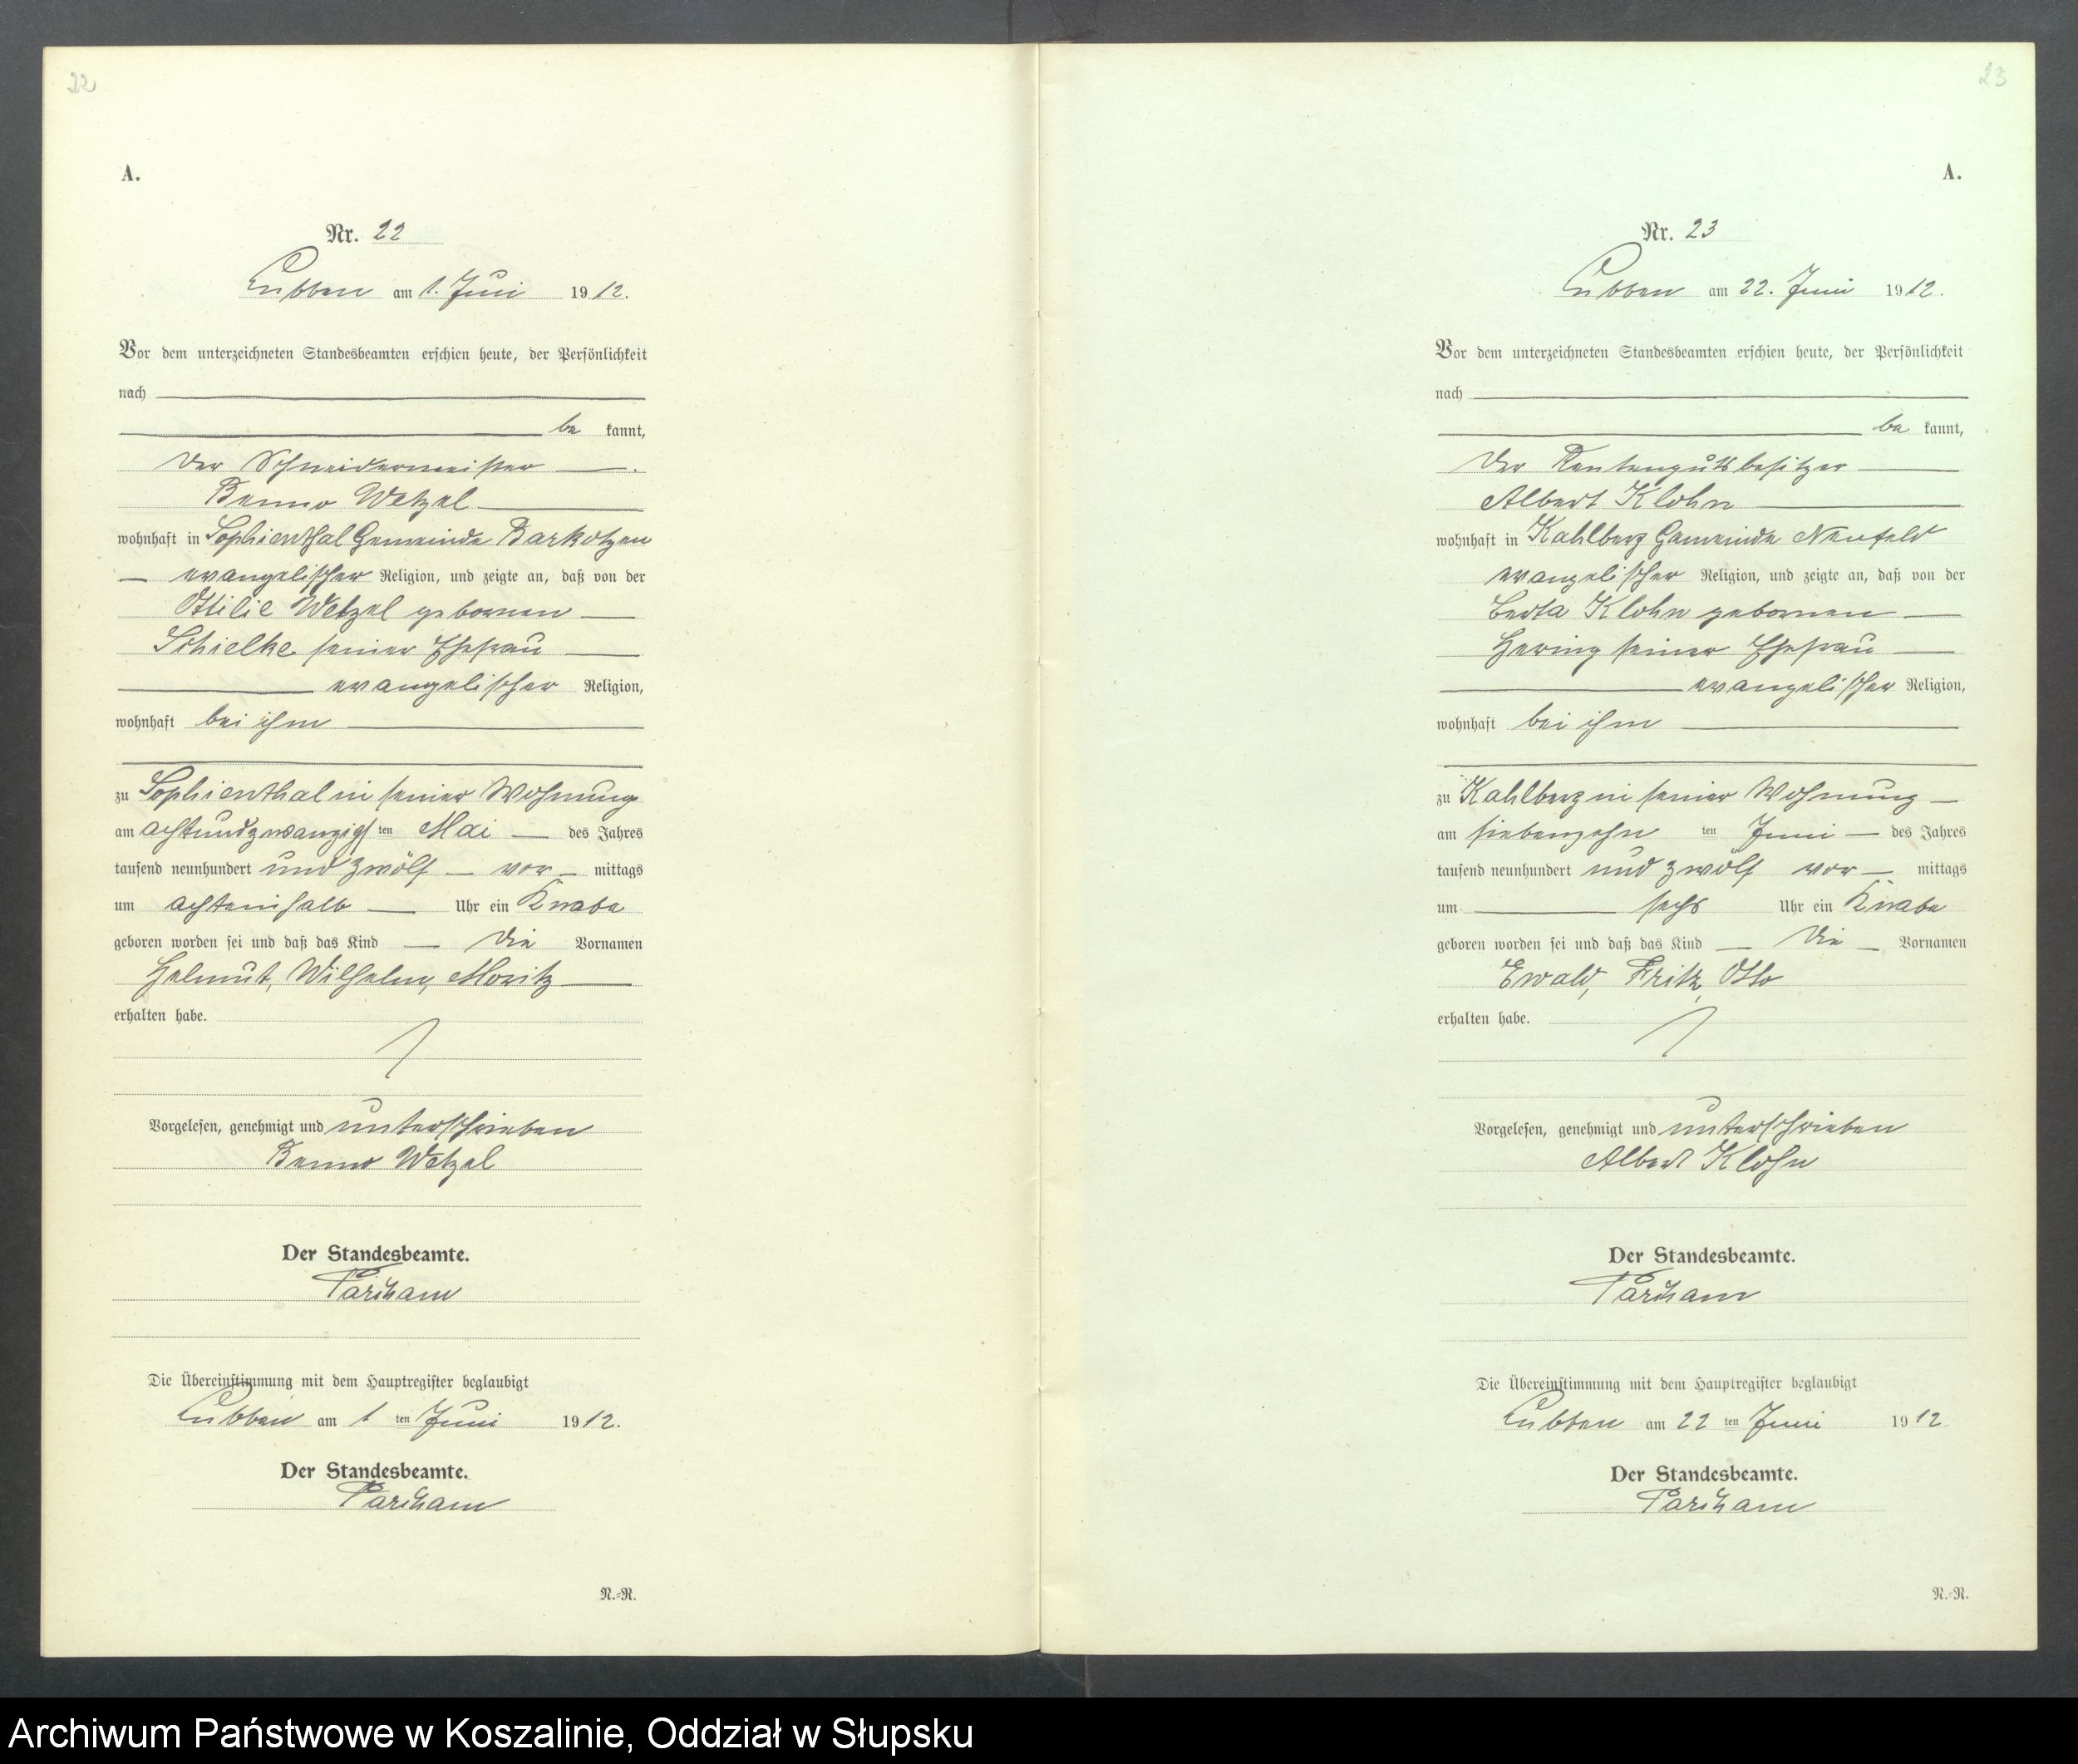 22
A.
Nr. 22
Lubben am 1. Juni 1912.
Vor dem unterzeichneten Standesbeamten erschien heute, der Persönlichkeit
nach
be kannt,
der Schneidermeister
Benno Wetzel
wohnhaft in Sophienthal Gemeinde Barkotzen
evangelischer Religion, und zeigte an, daß von der
Ottilie Wetzel gebornen
Schielke seiner Ehefrau
evangelischer Religion,
wohnhaft bei ihm
zu Sophienthal in seiner Wohnung
am achtundzwanzigsten Mai des Jahres
tausend neunhundert und zwölf vor mittags
um achteinhalb Uhr ein Knabe
geboren worden sei und daß das Kind die Vornamen
Helmut, Wilhelm, Moritz
erhalten habe.
Vorgelesen, genehmigt und unterschrieben
Benno Wetzel
Der Standesbeamte.
Die Übereinstimmung mit dem Hauptregister beglaubigt
Lubben am 1 ten Juni 1912.
Der Standesbeamte.
N.=R.
23
A.
Nr. 23
Lubben am 22. Juni 1912.
Vor dem unterzeichneten Standesbeamten erschien heute, der Persönlichkeit
nach
be kannt,
der Rentengutsbesitzer
Albert Klohn
wohnhaft in Kahlberg Gemeinde Neufeld
evangelischer Religion, und zeigte an, daß von der
Berta Klohn gebornen
Hering seiner Ehefrau
evangelischer Religion,
wohnhaft bei ihm
zu Kahlberg in seiner Wohnung
am siebenzehn ten Juni des Jahres
tausend neunhundert und zwölf vor mittags
um sechs Uhr ein Knabe
geboren worden sei und daß das Kind die Vornamen
Ewald, Fritz, Otto
erhalten habe.
Vorgelesen, genehmigt und unterschrieben
Albert Klohn
Der Standesbeamte.
Die Übereinstimmung mit dem Hauptregister beglaubigt
Lubben am 22 ten Juni 1912
Der Standesbeamte.
N.=R.
Archiwum Państwowe w Koszalinie, Oddział w Słupsku